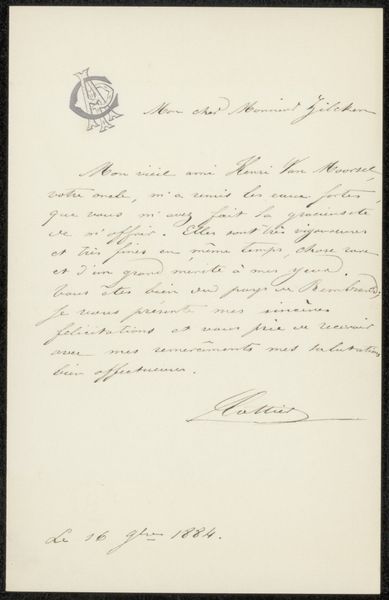 Mon cher Monsieur Zilcken
Mon vieil ami Henri Van Moorsel,
votre oncle, m'a remis les eaux fortes,
que vous m'avez fait la gracieuseté
de m'offrir. Elles sont très vigoureuses
et très fines en même temps, chose rare
et d'un grand mérite à mes yeux.
Vous êtes bien du pays de Rembrandt,
Je vous présente mes sincères
félicitations et vous prie de recevoir
avec mes remerciments mes salutations
bien affectueuses.
Le 16 9bre 1884.